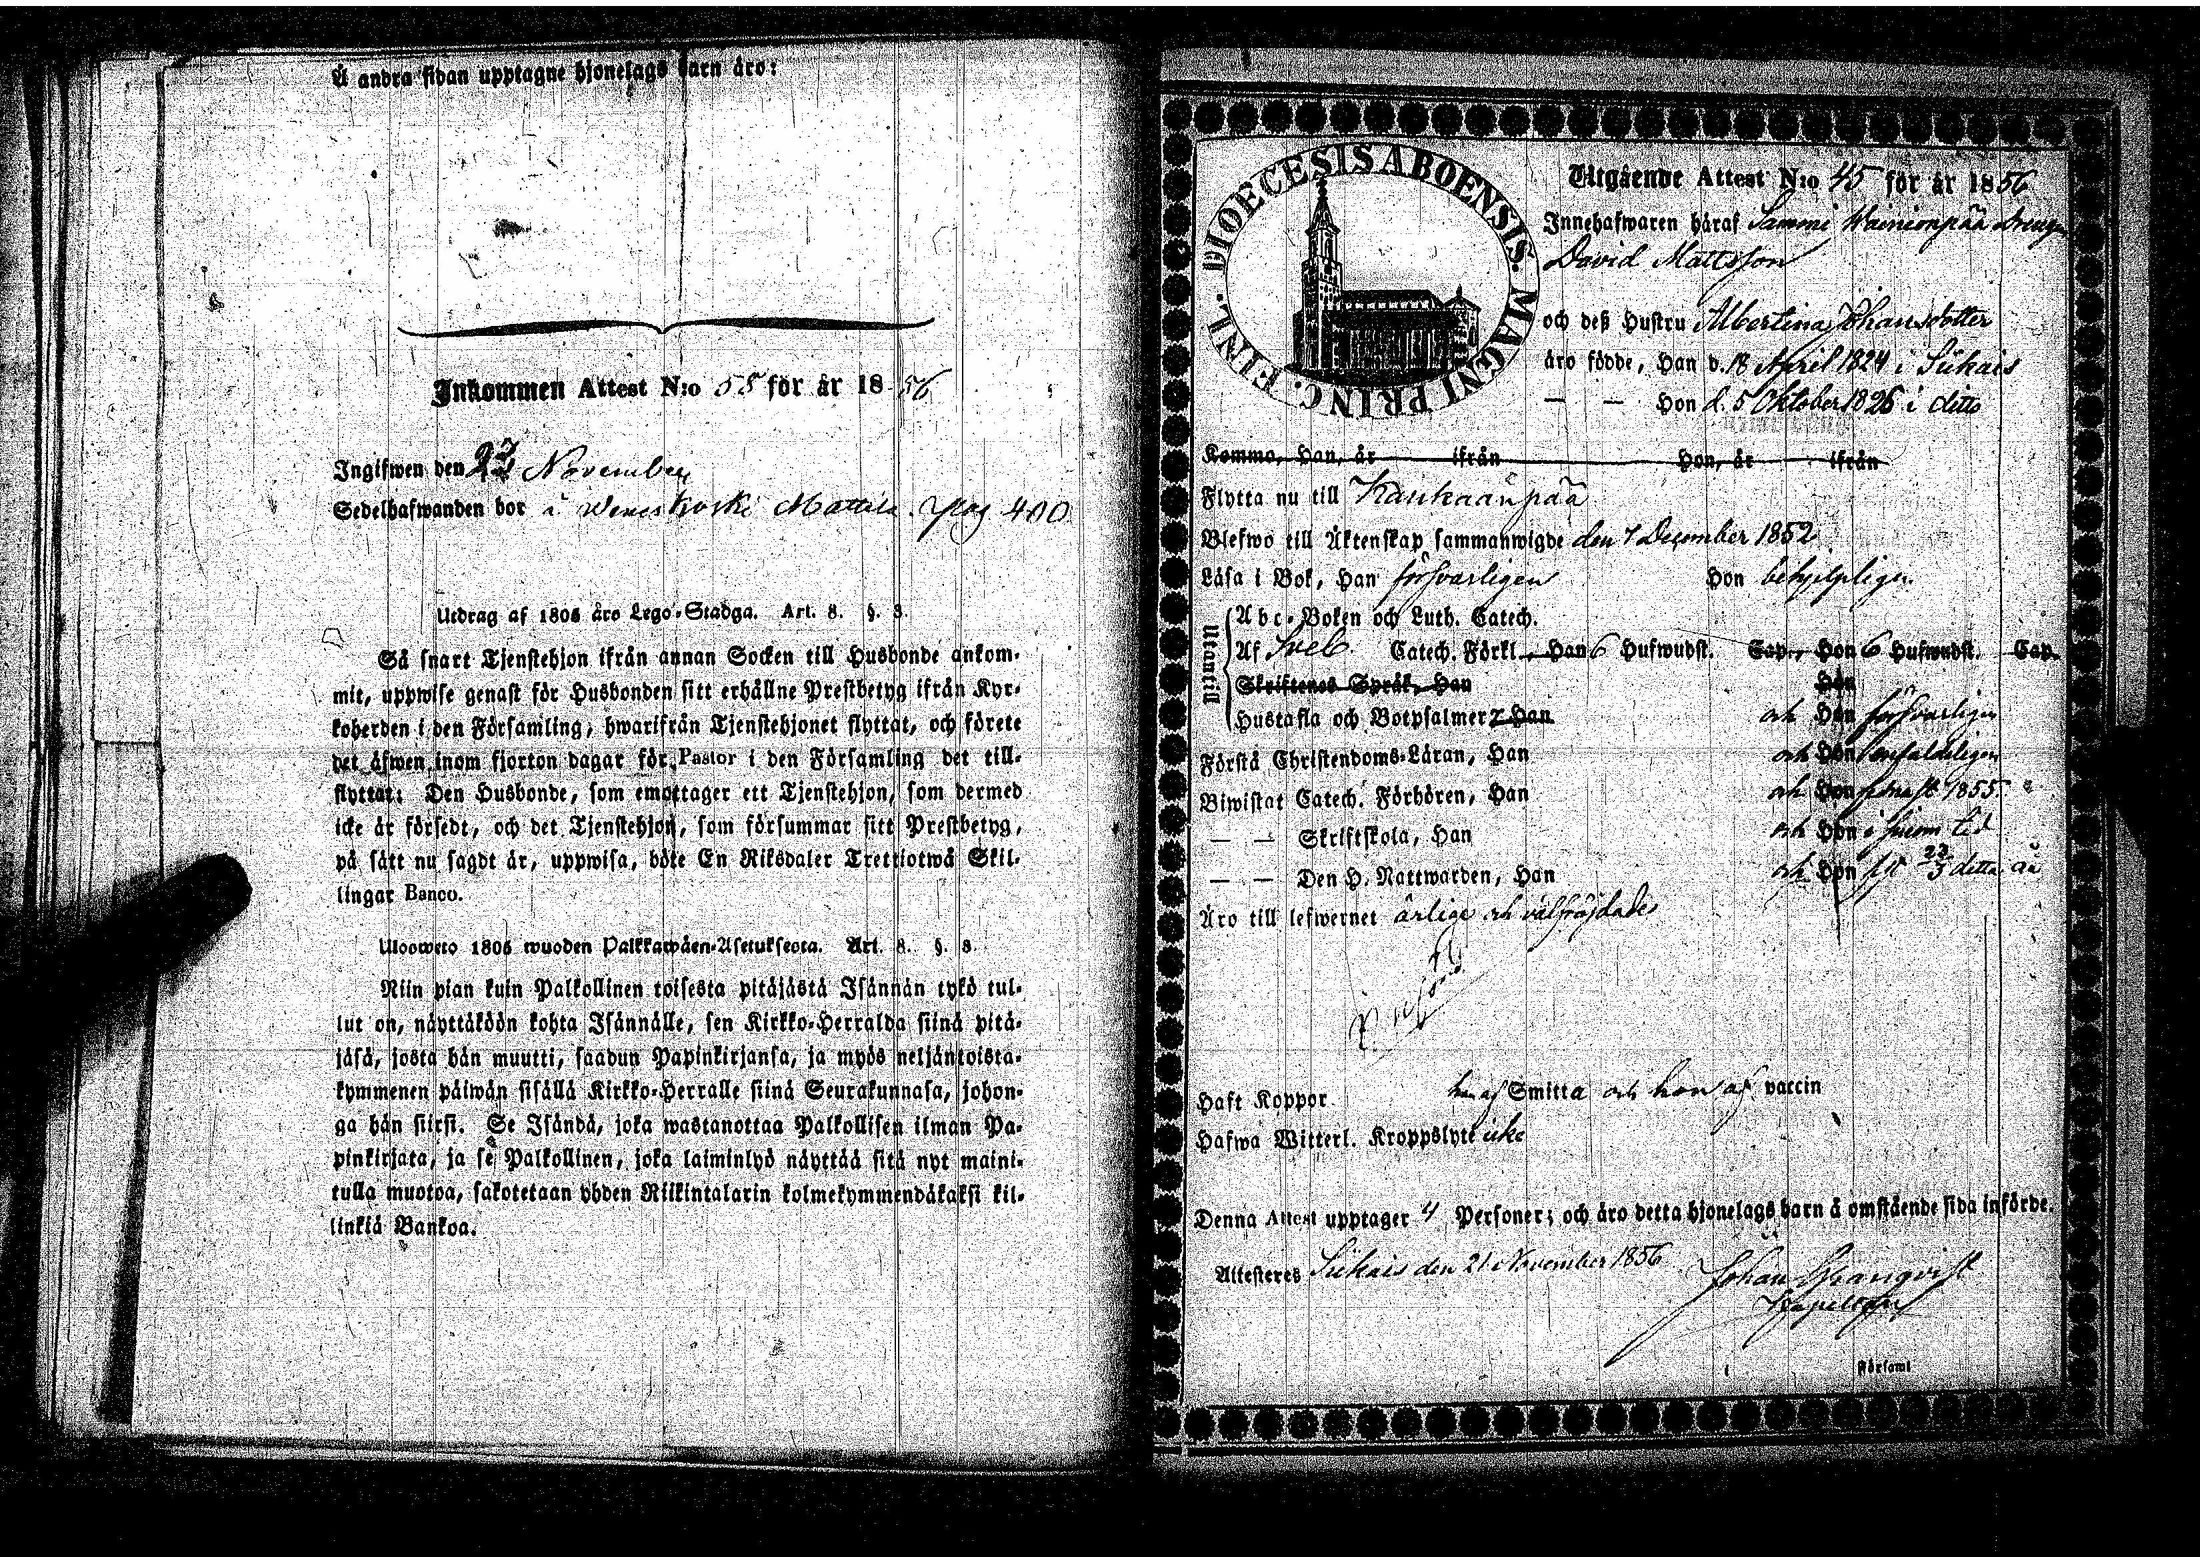 Å andra sidan upptagne hjonelags barn äro:
Inkommen Attest N:o 55 för år 1856
Ingifwen den 23 November
Sedelhafwanden bor i Mattila pag 400
Utdrag af 1805 års Lego-Stadga. Art. 8. §. 8.
Så snart Tjenstehjon ifrån annan Socken till Husbonde ankom-
mit, uppwise genast för Husbonden sitt erhållne Prestbetyg ifrån Kyr-
koherden i den Församling, hwarifrån Tjenstehjonet flyttat, och förete
det äfwen inom fjorton dagar för Pastor i den Församling det till-
flyttat: Den Husbonde, som emottager ett Tjenstehjon, som dermed
icke är försedt, och det Tjenstehjon, som försummar sitt Prestbetyg,
på sätt nu sagdt är, uppwisa, böte En Riksdaler Trettiotwå Skil-
lingar Banco.
Ulosweto 1805 wuoden Palkkawäen-Asetuksesta. Art. 8. §. 8.
Niin pian kuin Palkollinen toisesta pitäjästä Isännän tykö tul-
lut on, näyttäköön kohta Isännälle, sen Kirkko-Herralda siinä pitä-
jäsä, josta hän muutti, saadun Papinkirjansa, ja myös neljäntoista-
kymmenen päiwän sisällä Kirkko-Herralle siinä Seurakunnasa, johon-
ga hän siirsi. Se Isändä, joka wastanottaa Palkollisen ilman Pa-
pinkirjata, ja se Palkollinen, joka laiminlyö näyttää sitä nyt maini-
tulla muotoa, sakotetaan yhden Riikintalarin kolmekymmendäkaksi kil-
linkiä Bankoa.
DIOECESIS ABOENSIS. MAGNI PRINC. FINL.
Utgående Attest N:o 45 för år 1856
Innehafwaren häraf Sammi Wainionpää Dreng
David Mattsson
och deß Hustru Albertina Johansdotter
äro födde, Han d. 18 April 1824 i Siikais
— — Hon d. 5 Oktober 1826 i ditto
Komma, Han, år ifrån Hon, år ifrån
Flytta nu till Kankaanpää
Blefwo till Äktenskap sammanwigde den 7 December 1852
Läsa i Bok, Han försvarligen Hon behjelpligen
Utantill
Abc-Boken och Luth. Catech.
Af Sveb. Catech. Förkl. Han 6 Hufwudst. Cap., Hon 6 Hufwudst. Cap.
Skriftenes Språk, Han Hon
Hustafla och Botpsalmer, Han och Hon försvarligen
Förstå Christendoms-Läran, Han och Hon enfaldeligen
Biwistat Catech. Förhören, Han och Hon senast 1855
— — Skriftskola, Han och Hon i sinom tid
— — Den H. Nattwarden, Han och Hon sist 23/3 detta år
Äro till lefwernet ärlige och välfräjdade
Haft Koppor han af Smitta och hon af vaccin
Hafwa Witterl. Kroppslyte icke
Denna Attest upptager 4 Personer; och äro detta hjonelags barn å omstående sida införde.
Attesteres Siikais den 21 November 1856
Johan
Kapellan
Församl